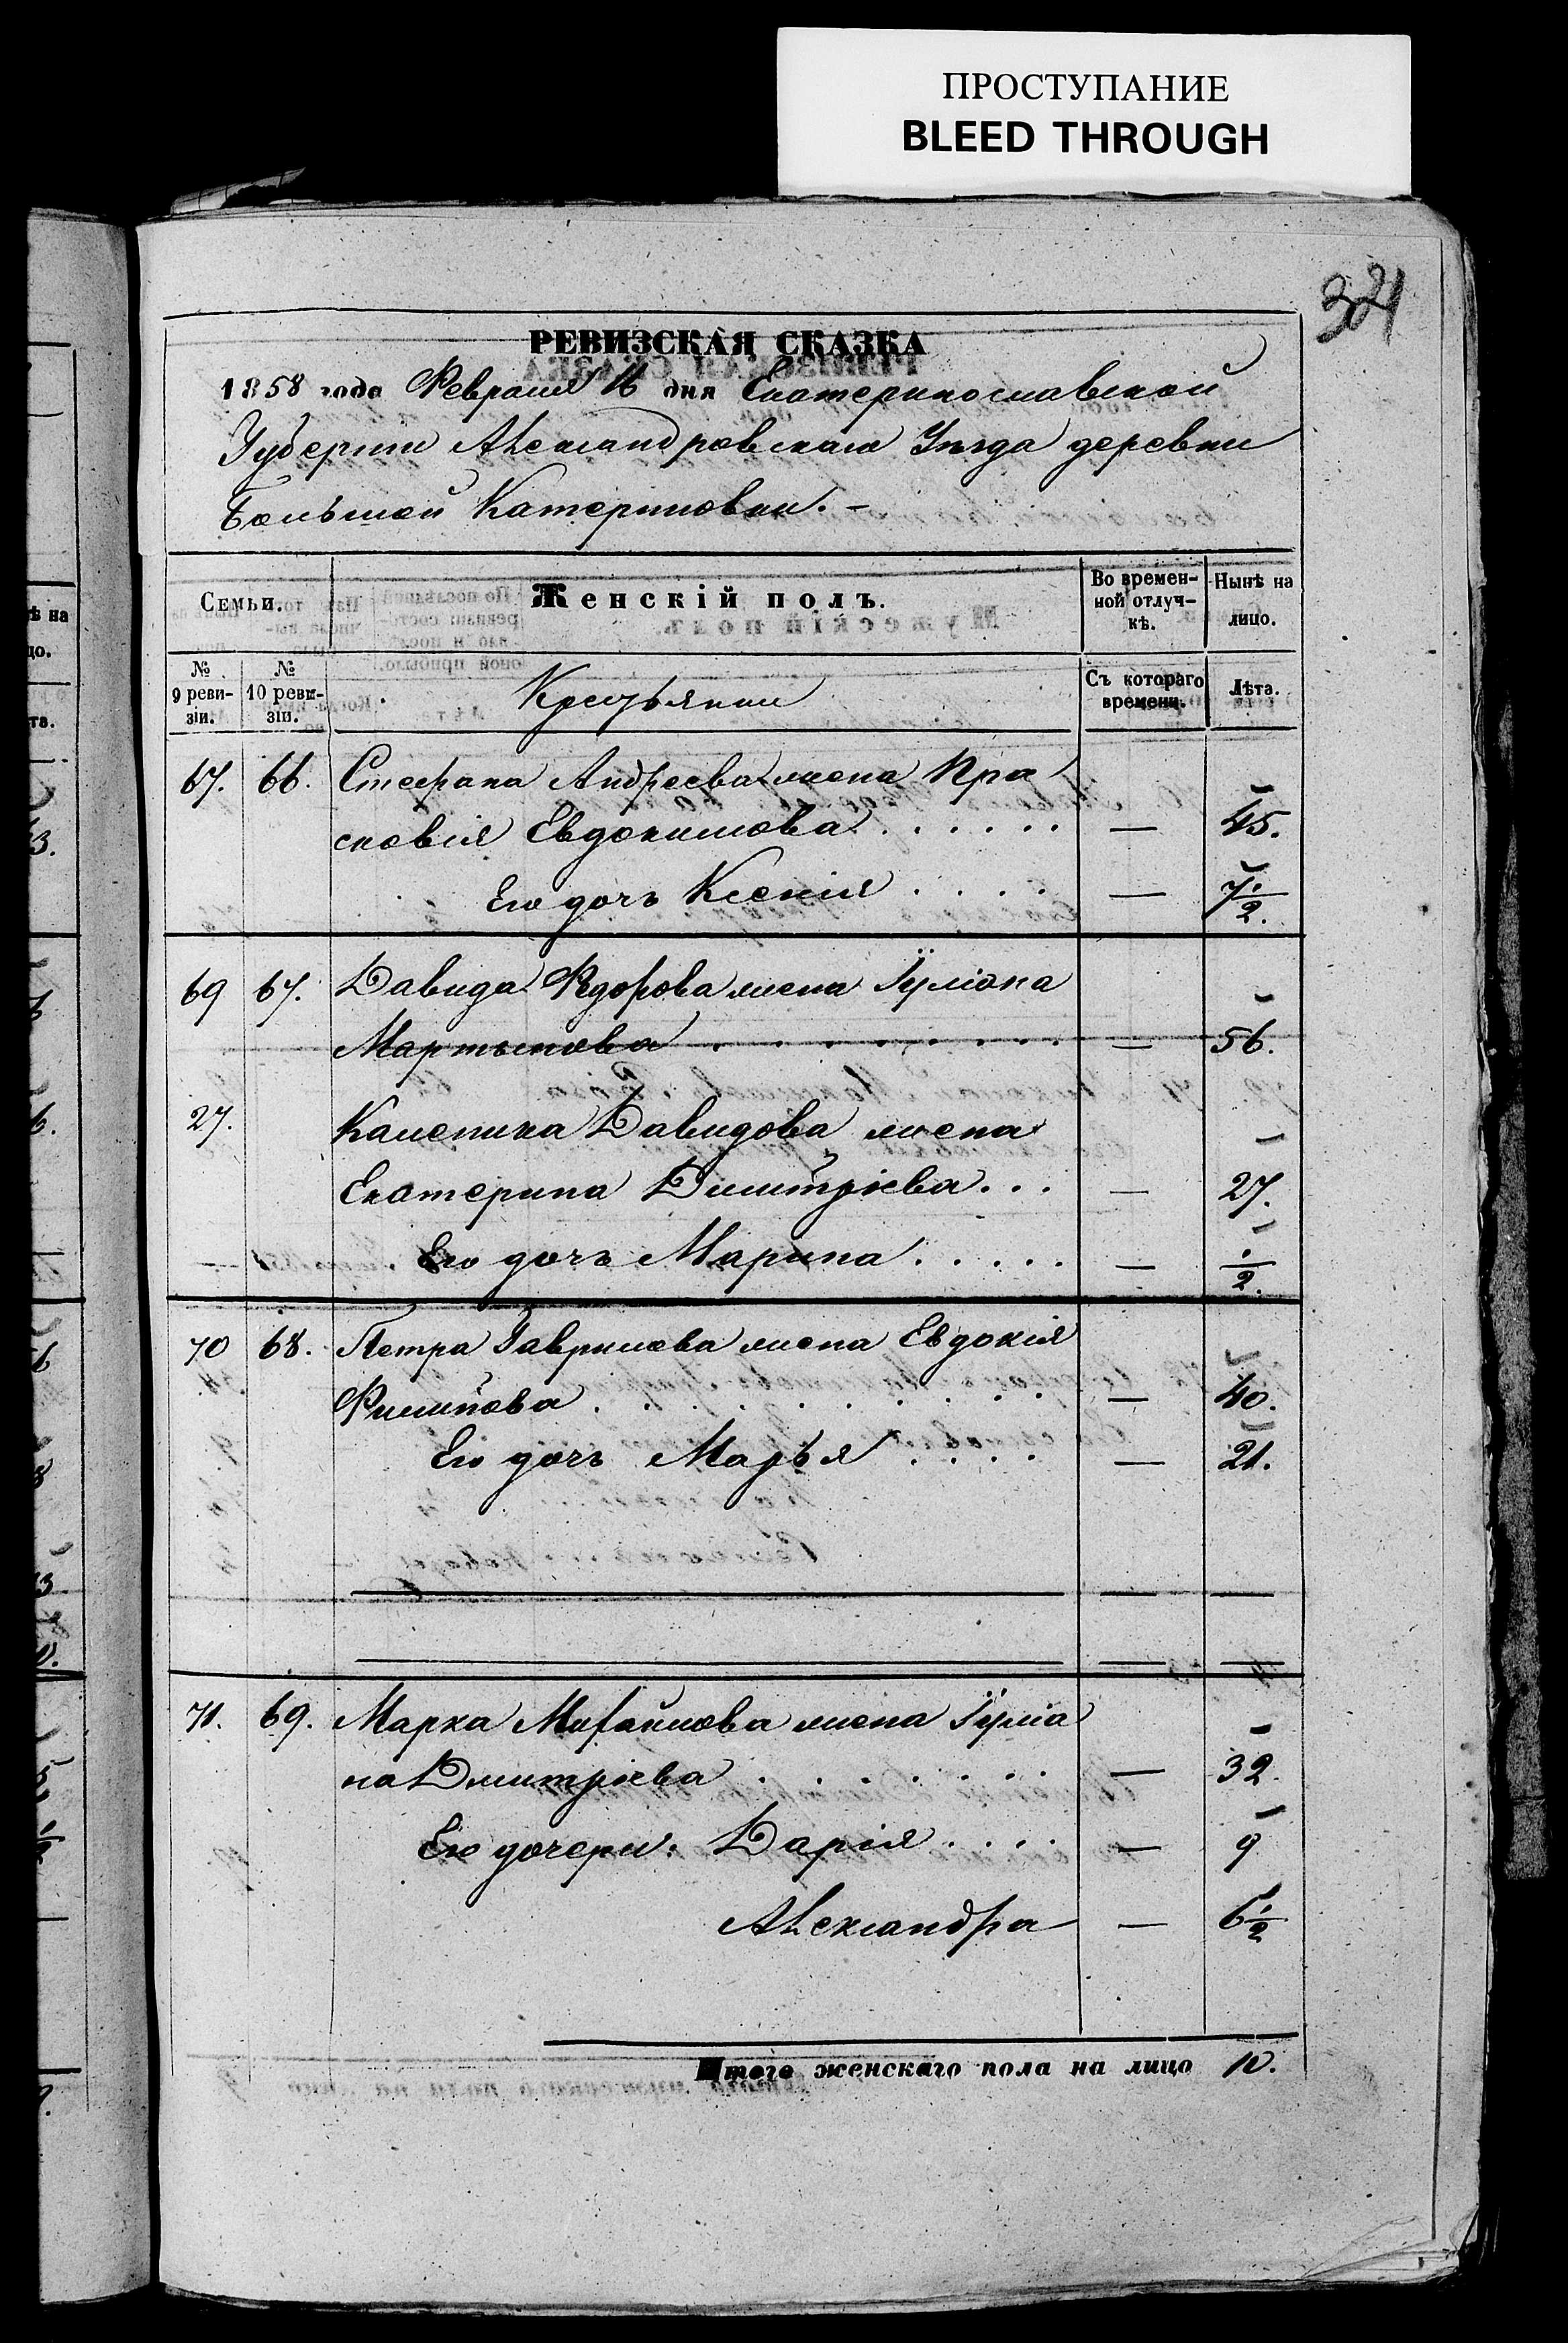 ПРОСТУПАНИЕ
BLEED THROUGH
321
РЕВИЗСКАЯ СКАЗКА
1858 года Февраля 16 дня Екатеринославской
Губерніи Александровскаго Уѣзда деревни
Большой Катериновки. –
Семьи.
Женскій полъ.
Во времен-
ной отлуч-
кѣ.
Нынѣ на
лицо.
№
9 реви-
зіи.
№
10 реви-
зіи.
Крестьянки
Съ котораго
времени.
Лѣта.
67. 66. Стефана Андреева жена Пра
сковія Евдокимова . . . . . . — 45.
Его дочь Ксенія . . . . — 7 1/2.
69 67. Давида Федорова жена Іуліана
Мартынова . . . . . . . . . — 56.
27. Каленика Давидова жена
Екатерина Димитріева . . . — 27.
Его дочь Марина . . . . . — 1/2.
70 68. Петра Гаврилова жена Евдокія
Филипова . . . . . . . . — 40.
Его дочь Марья . . . . — 21.
71. 69. Марка Михайлова жена Іуліа
на Дмитріева . . . . . . . — 32.
Его дочери: Дарія . . . . — 9
Александра — 6 1/2
Итого женскаго пола на лицо 10.